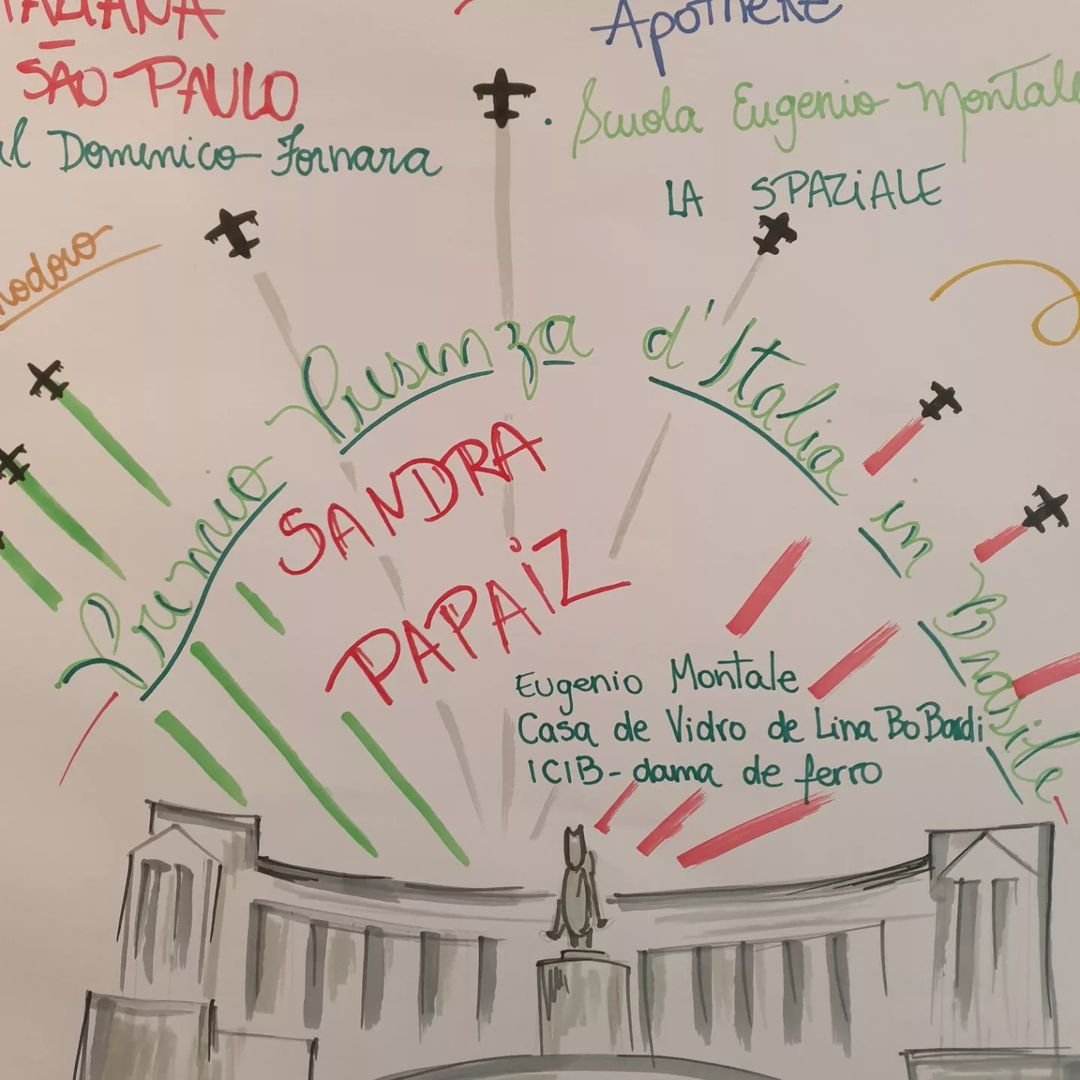 SÃO PAULO
Domenico Fornara
Scuola Eugenio Montale
LA SPAZiALE
Premio Presenza d'Italia in Brasile
SANDRA
PAPAiZ
Eugenio Montale
Casa de Vidro de Lina Bo Bardi
ICIB - dama de ferro